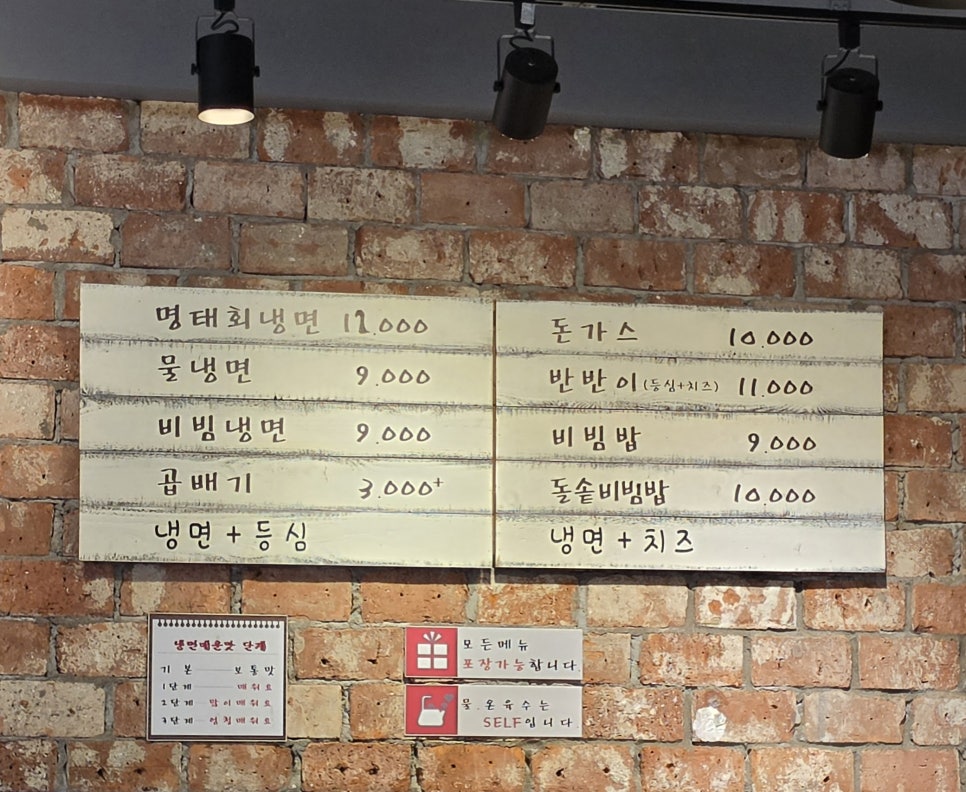 명태회냉면 12.000
물냉면 9.000
비빔냉면 9.000
곱배기 3.000+
냉면+등심
돈가스 10.000
반반이(등심+치즈) 11.000
비빔밥 9.000
돌솥비빔밥 10.000
냉면+치즈
냉면매운맛 단계
기본 보통맛
1단계 매워요
2단계 많이매워요
3단계 엄청매워요
모든메뉴
포장가능합니다.
물.온육수는
SELF입니다